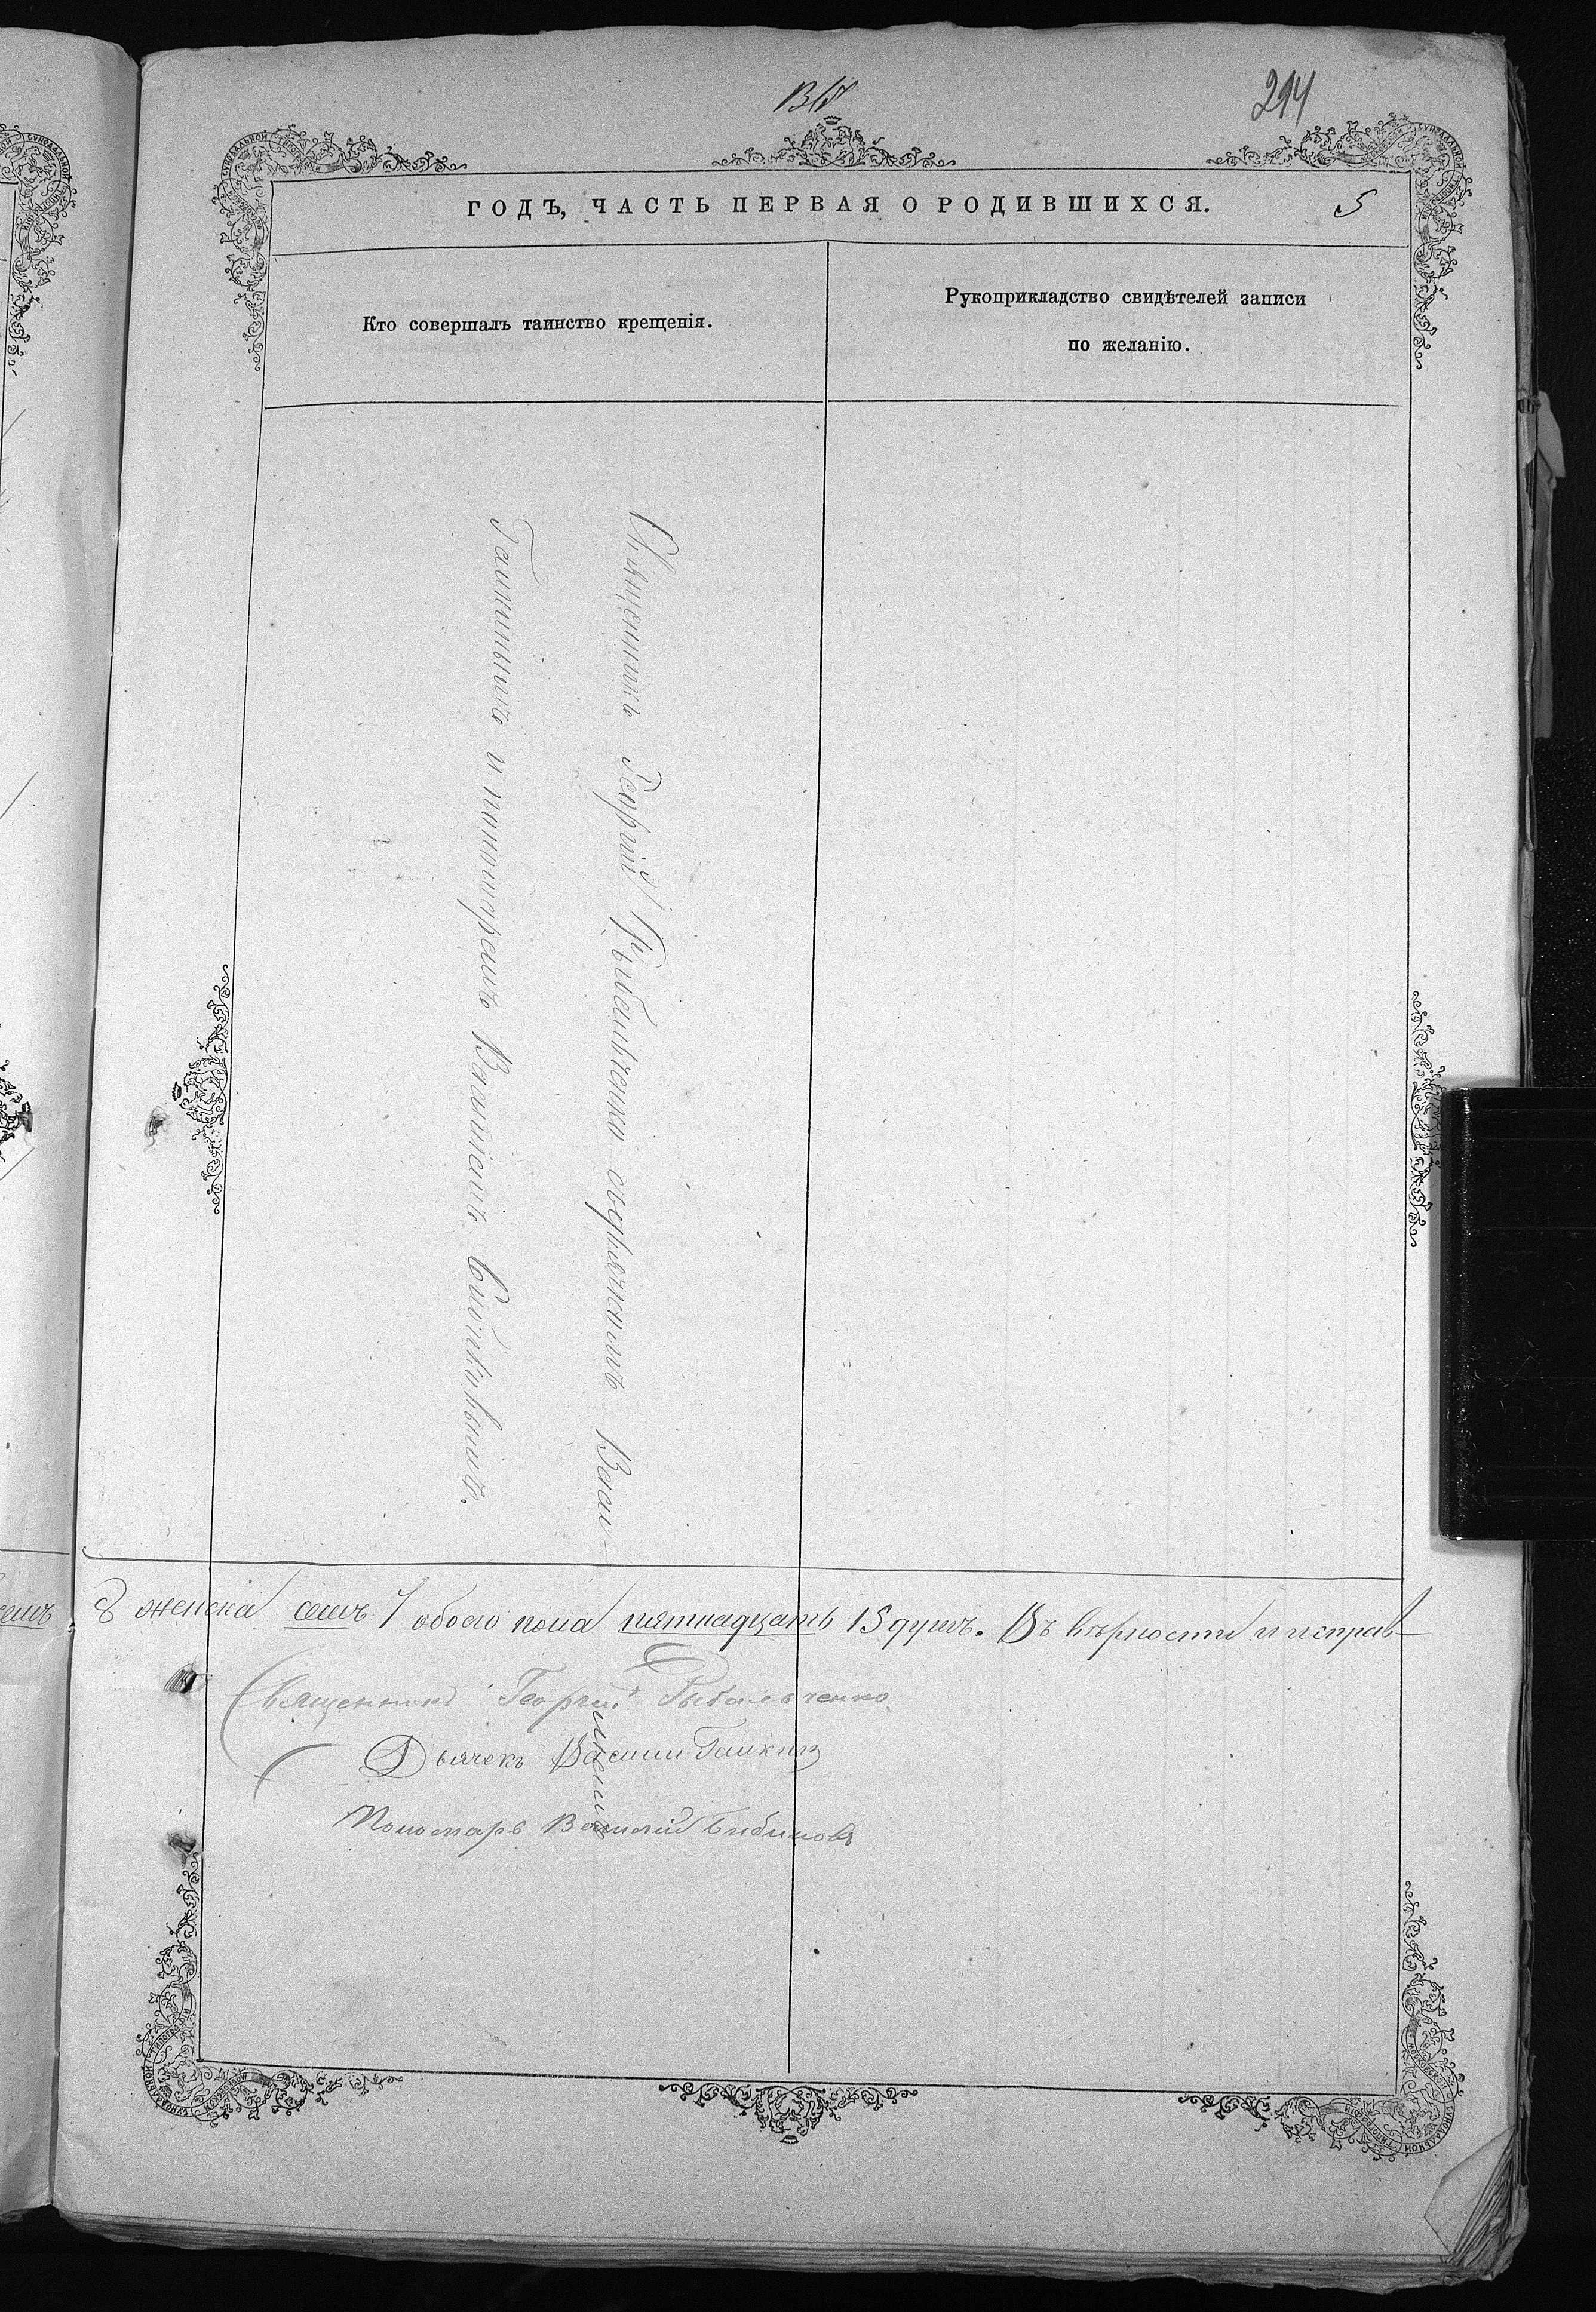 294
ГОДЪ, ЧАСТЬ ПЕРВАЯ О РОДИВШИХСЯ.
5
Кто совершалъ таинство крещенія.
Рукоприкладство свидѣтелей записи
по желанію.
Священникъ Георгій Рыбальченко съ дьячкомъ Васи-
Галкинымъ и пономаремъ Василіемъ
8 женска семь 7 обоего пола пятнадцать 15 душъ. Въ вѣрности и исправ-
Священникъ Георгій Рыбальченко
Дьячекъ Василій Галкинъ
Пономарь Василій